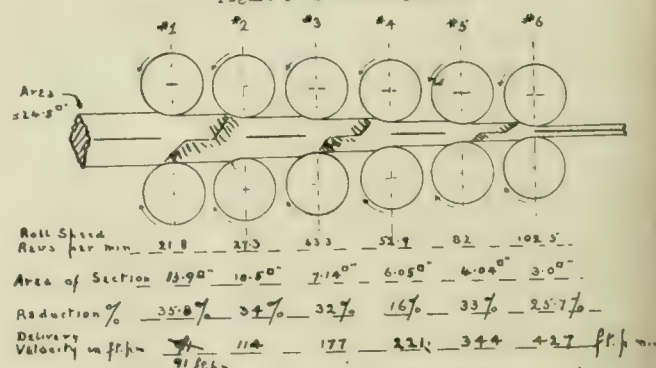 #1 #2 #3 #4 #5 #6
Area
=24.8□"
Roll Speed
Revs per min 21.8 27.3 43.3 52.9 82 102.5
Area of Section 15.90□" 10.5□" 7.14□" 6.05□" 4.04□" 3.0□"
Reduction % 35.8% 34% 32% 16% 33% 25.7%
Delivery
Velocity in ft.p.m 114 177 221 344 427 ft. p. m.
91 ft.p.m